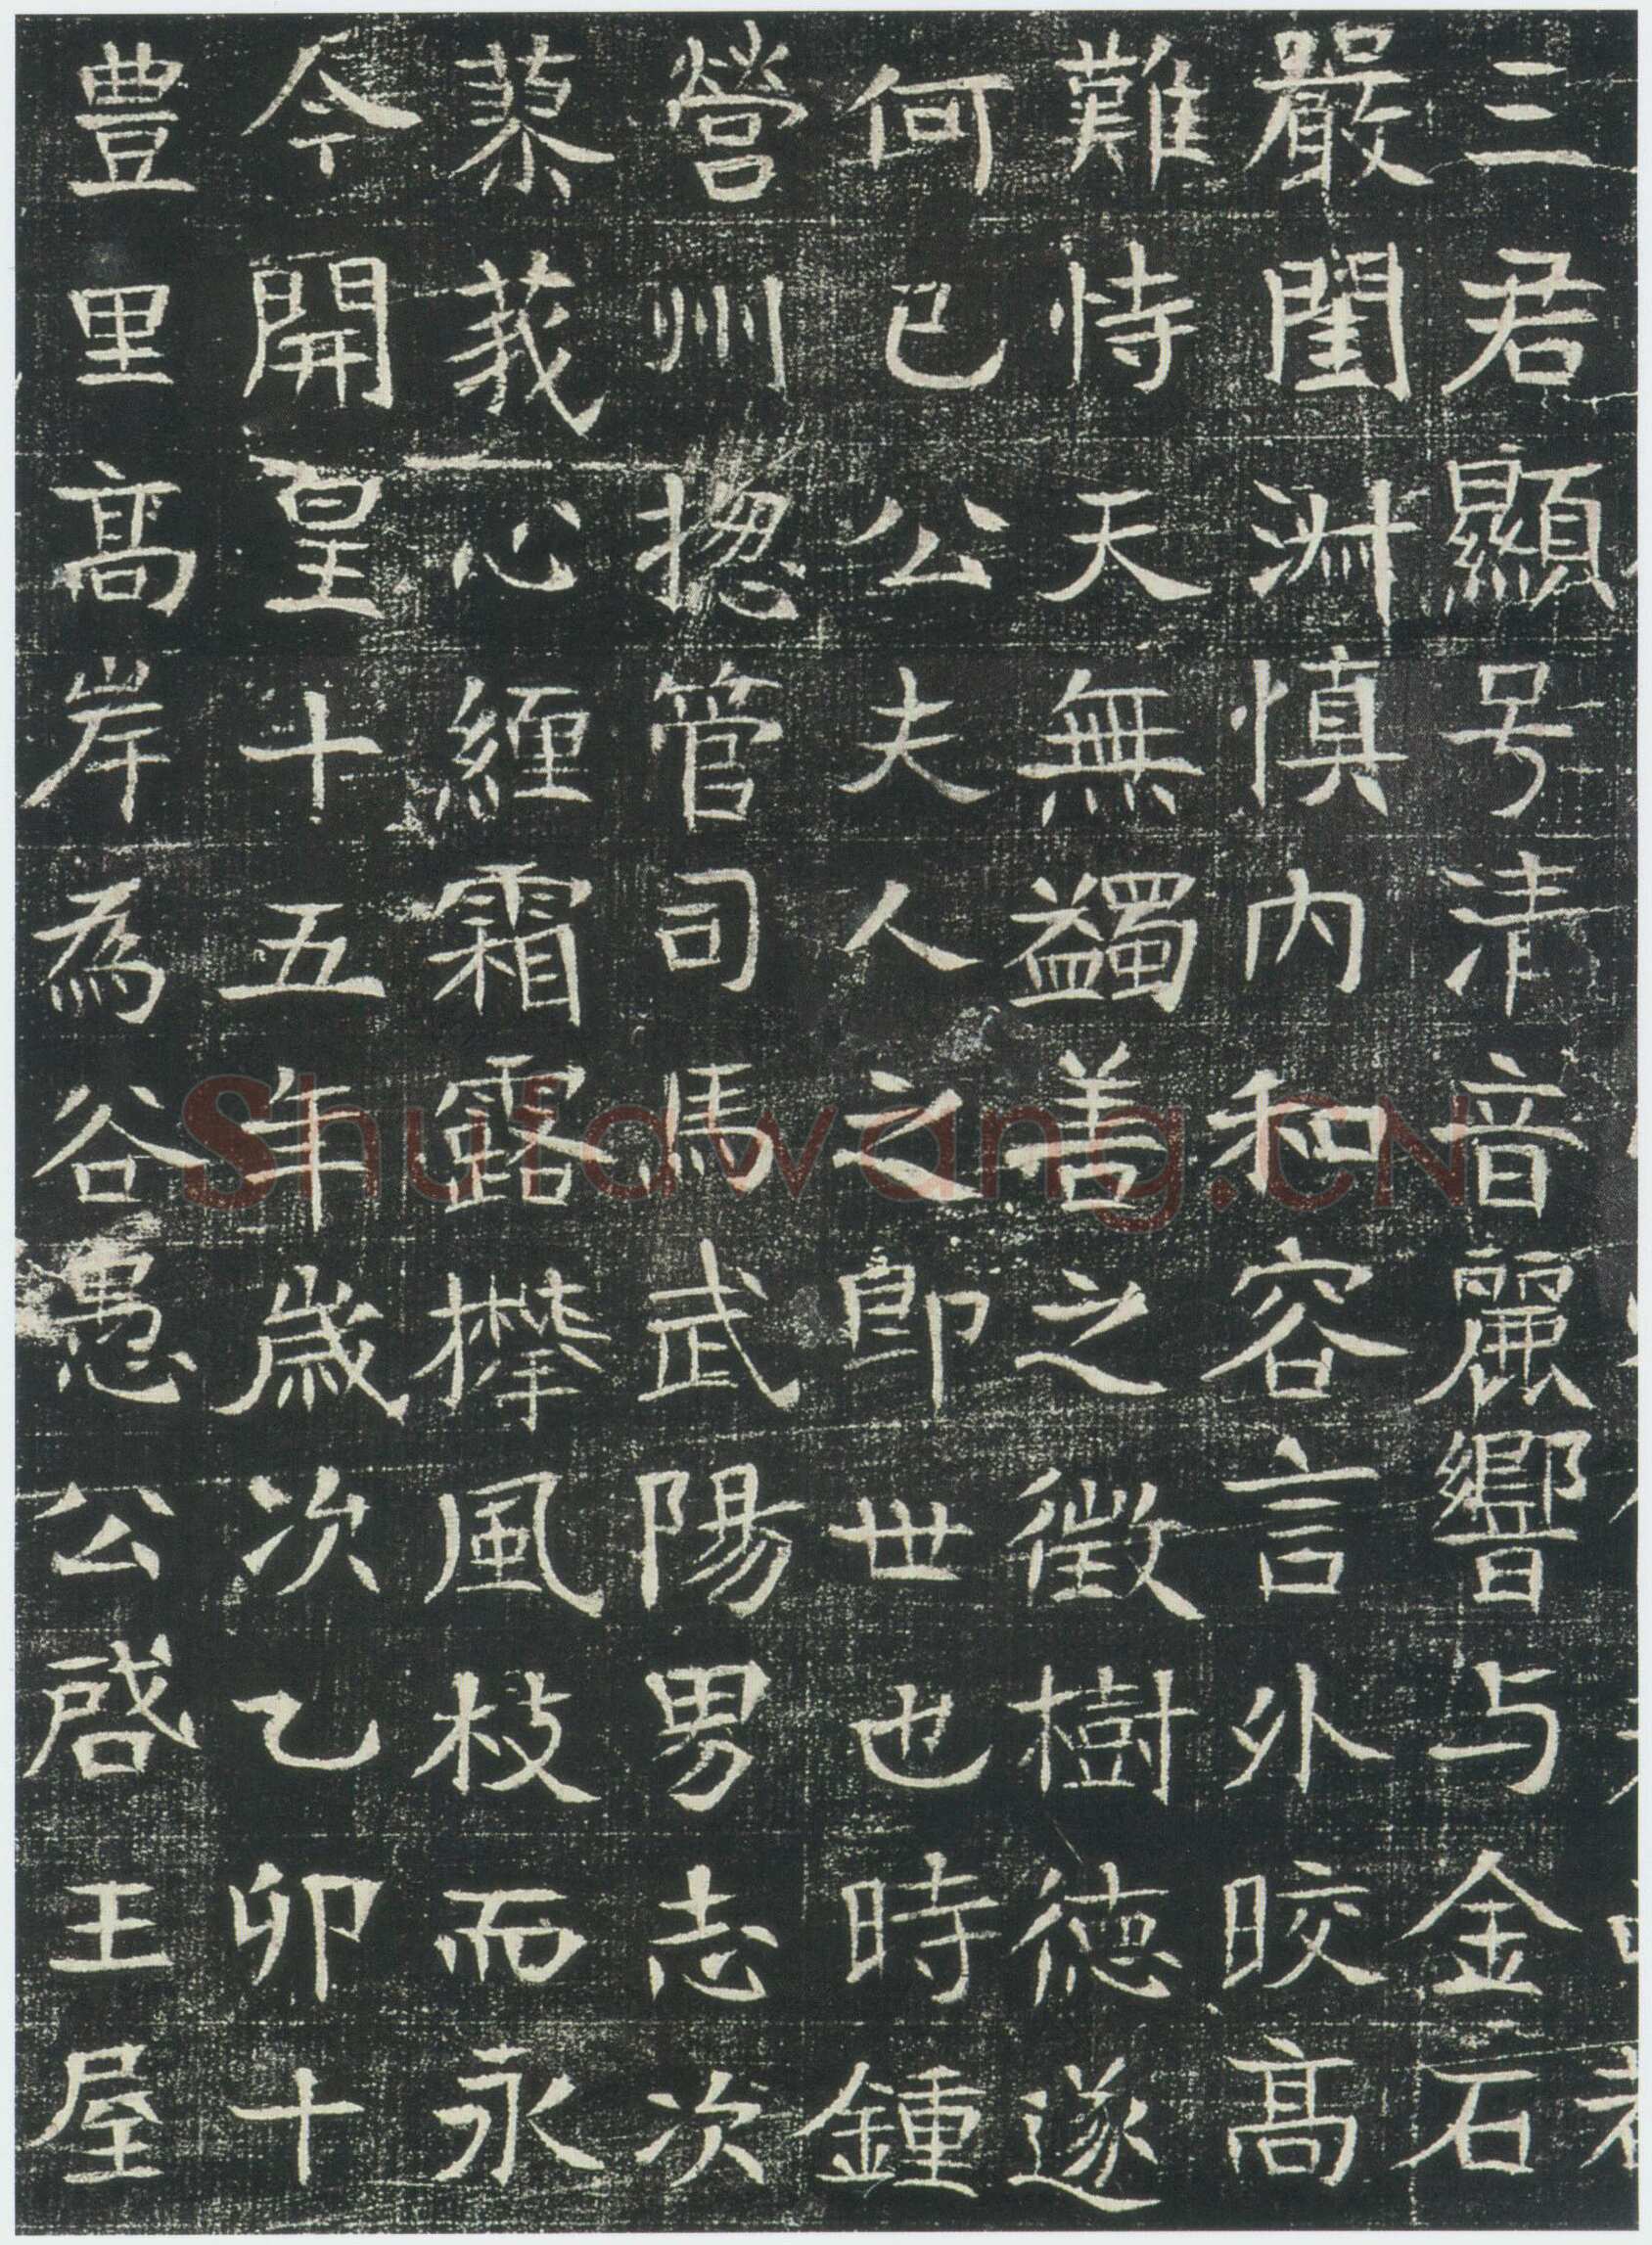 三君顯号清音麗響与金石
嚴閨淋慎内和容言外晈髙
難恃天無蠲善之徵樹德遂
何已公夫人之即世也時鍾
營州揔管司馬武陽男志次
蔡莪心纏霜露攀風枝而永
今開皇十五年歲次乙卯十
豊里髙岸為谷愚公啓王屋
Shufawang.CN